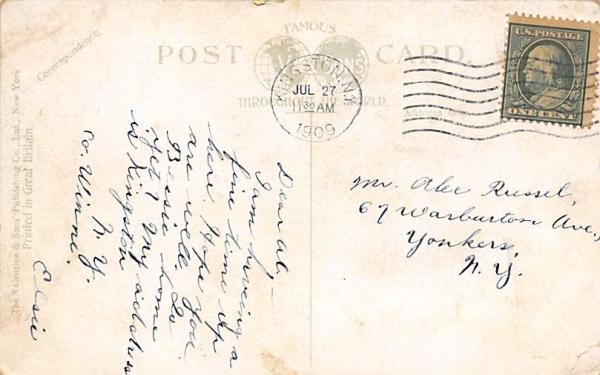 FAMOUS
POST CARD
THROUGHOUT THE WORLD.
Correspondence
The Valentine & Sons' Publishing Co., Ltd., New York
Printed in Great Britain
KINGSTON, N.Y.
JUL 27
11 30 AM
1909
U.S. POSTAGE
ONE CENT
Dear Al, –
I am having a
fine time up
here. Hope you
are well. Is
Bessie home
yet? My address
is Kingston
N.Y.
co. Winne.
Elsie
Mr. Abe Russel,
67 Warburton Ave.,
Yonkers,
N.Y.